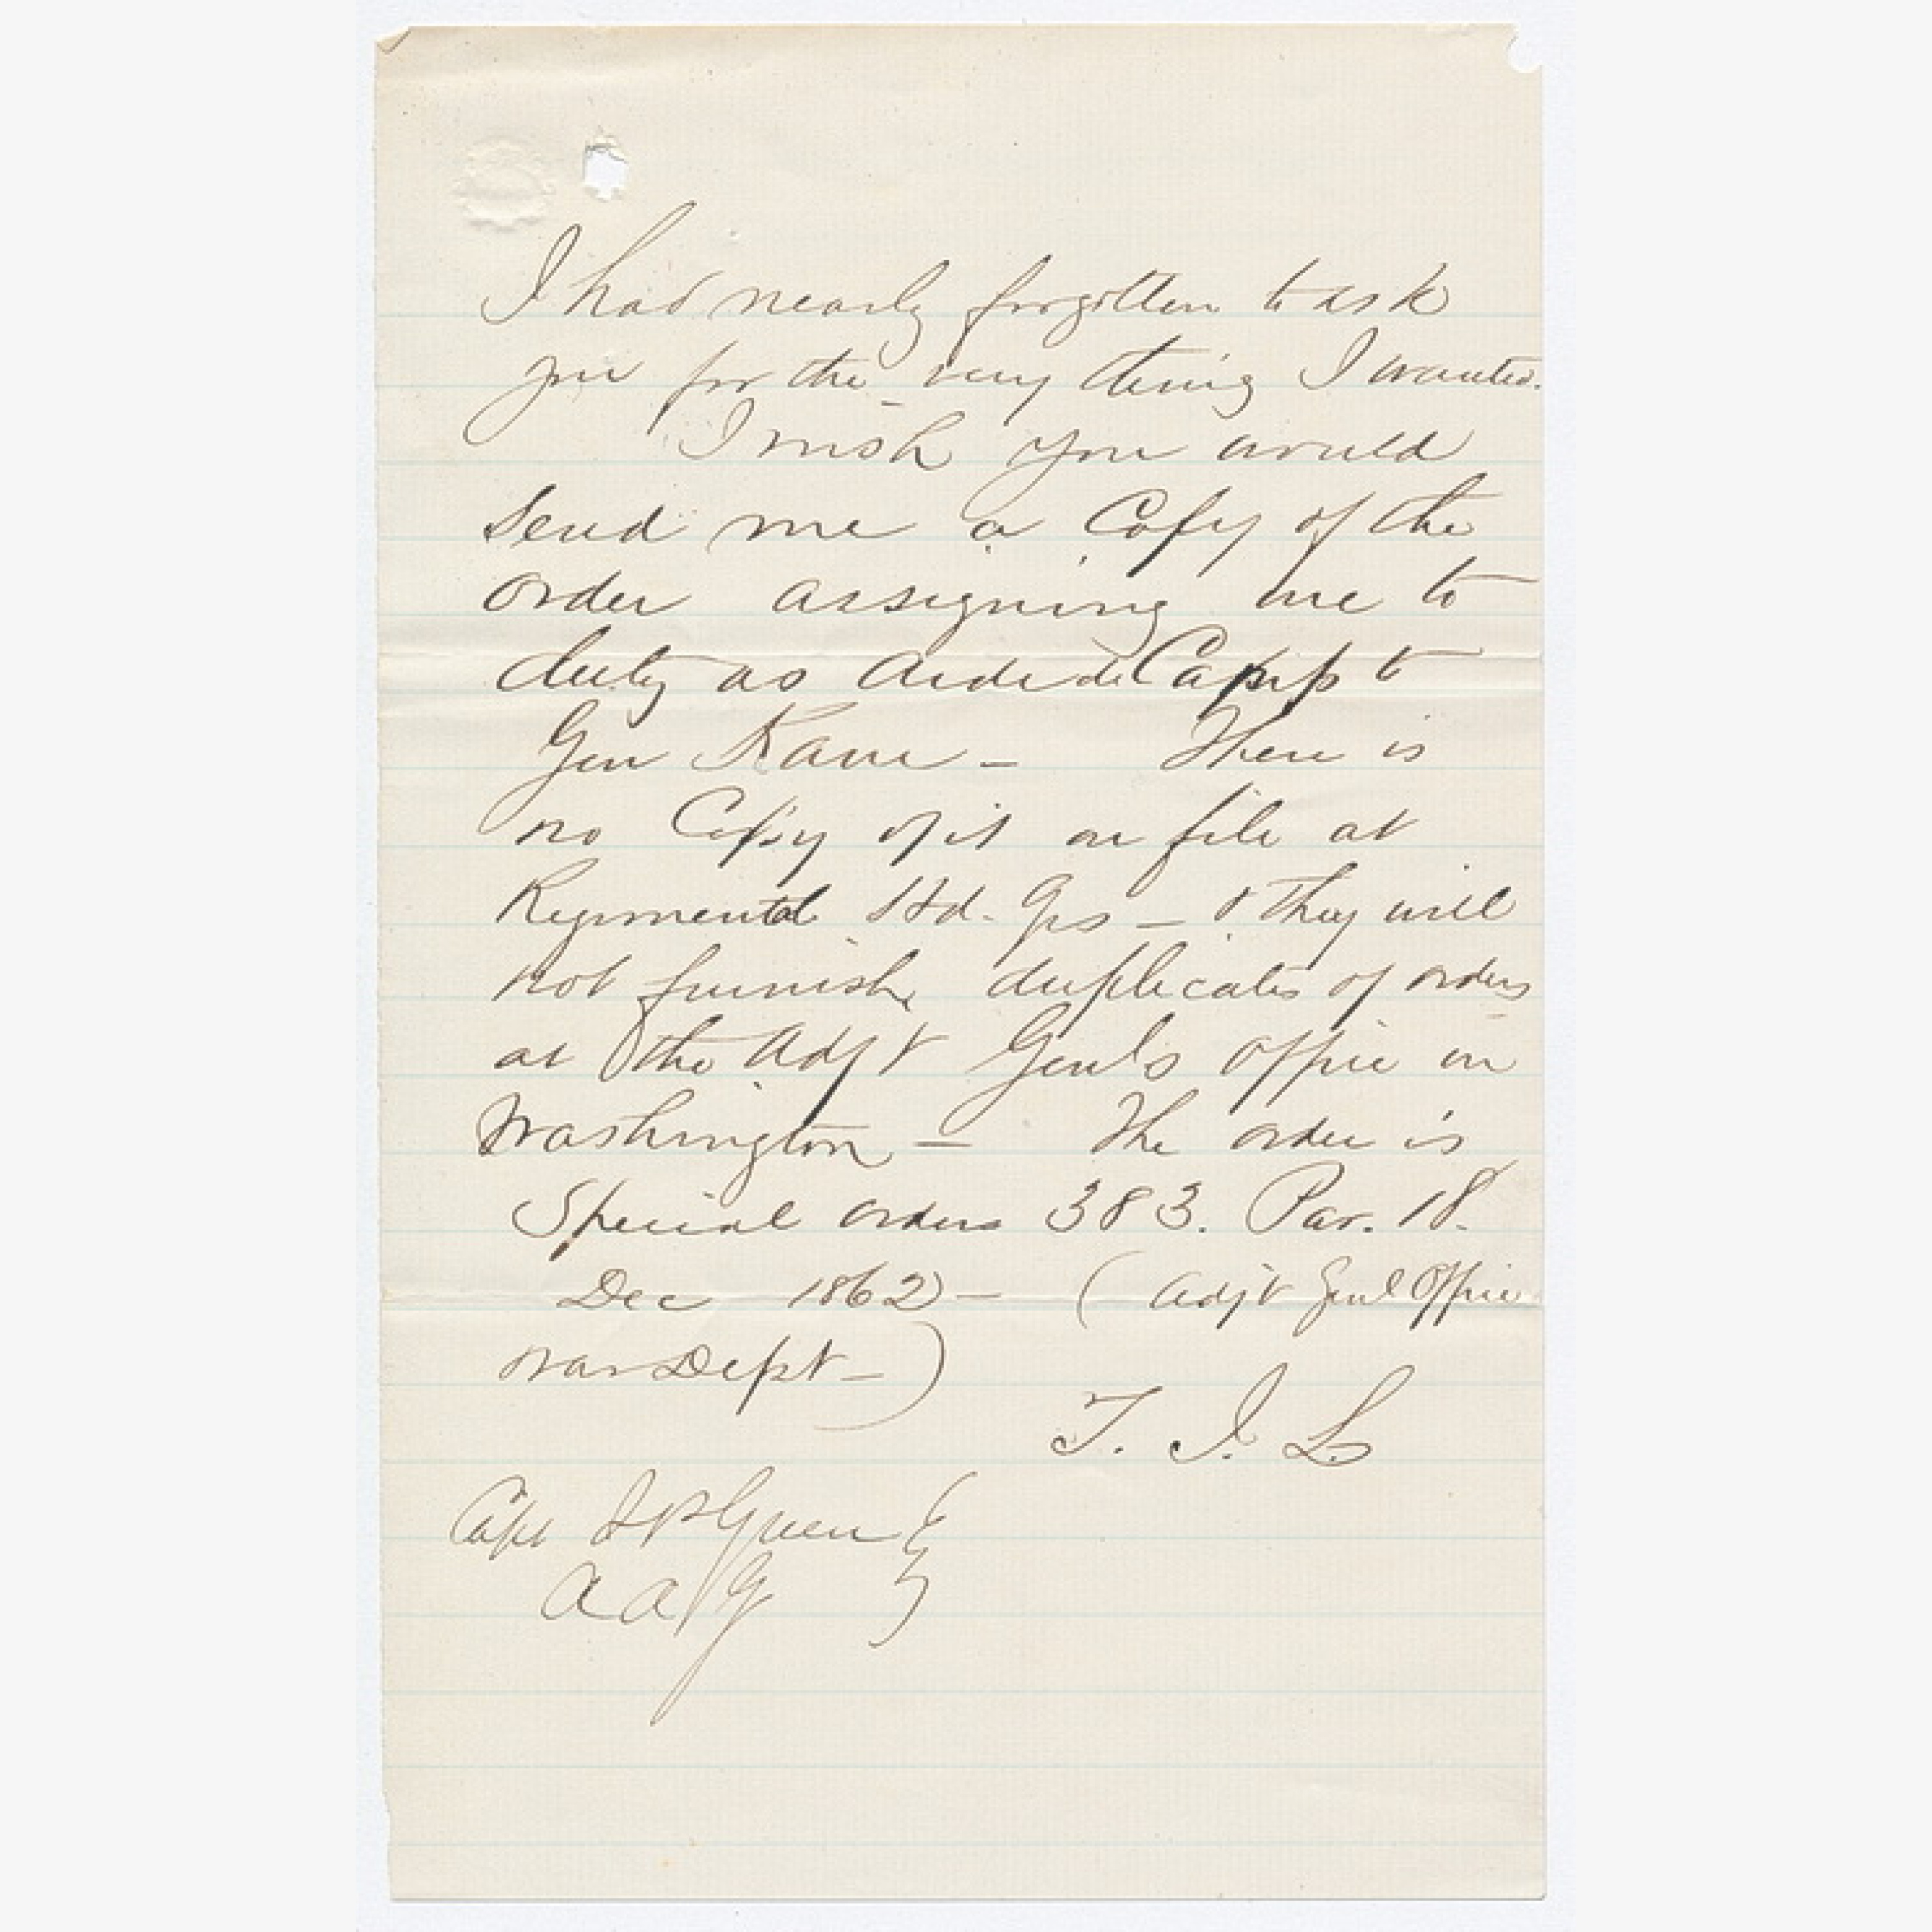 I had nearly forgotten to ask
you for the very thing I wanted.
I wish you would
send me a Copy of the
order assigning me to
duty as Aide de Camp to
Gen Kane –   There is
no Copy of it on file at
Regimental Hd. Qrs – & they will
not furnish duplicates of orders
at the Adjt Genl's office in
Washington –   The order is
Special orders 383. Par. 18.
Dec 1862 –   ( Adjt Genl Office
War Dept – )
T. J. L.
Capt Green
A A G